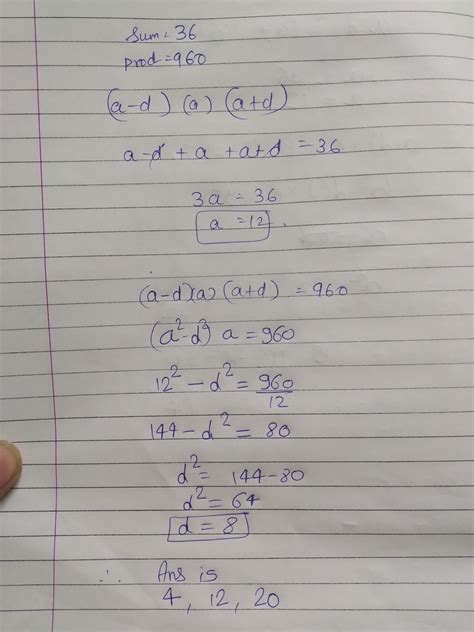 Sum = 36
prod = 960
(a-d) (a) (a+d)
a-d + a + a+d = 36
3a = 36
a = 12.
(a-d)(a) (a+d) = 960
(a²-d²) a = 960
12² - d² = 960/12
144 - d² = 80
d² = 144-80
d² = 64
d = 8
∴ Ans is
4, 12, 20